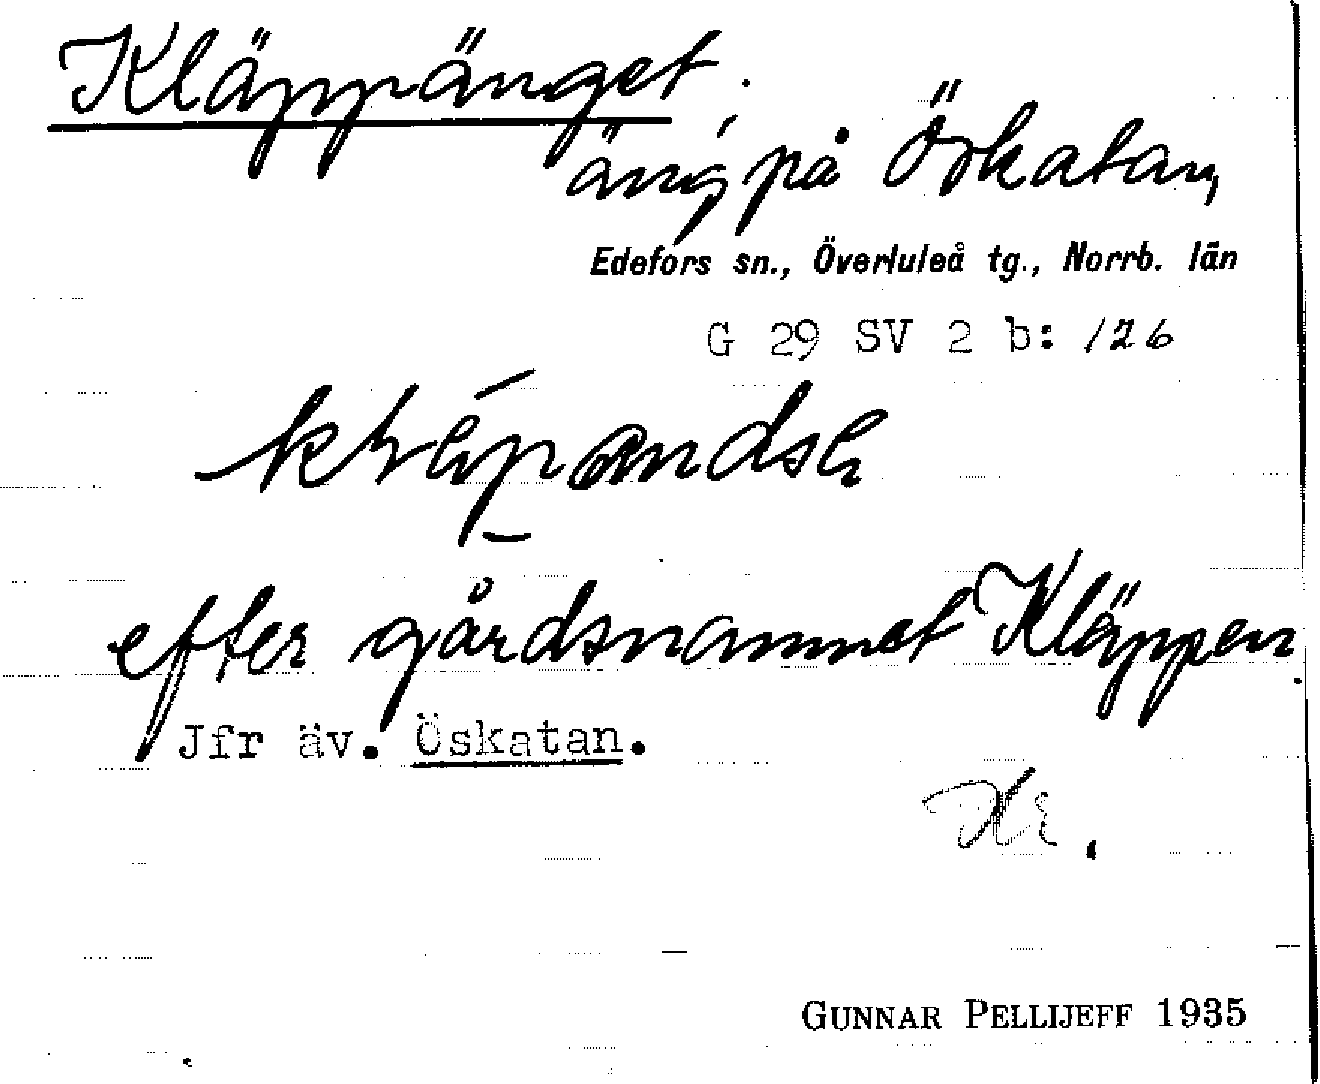 Kläppänget.
äng på Öskatan,
Edefors sn., Överluleå tg., Norrb. län
G 29 SV 2 b: 126
efter gårdsnamnet Kläppen.
Jfr äv. Öskatan.
GUNNAR PELLIJEFF 1935